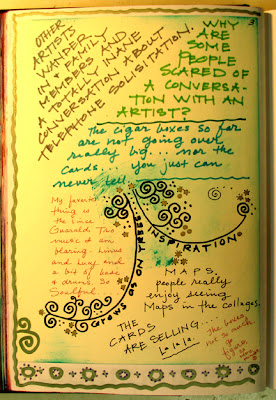 OTHER
ARTISTS
WAITER
IN A FAMILY
MEMBERS AND
A TOTALLY INANE
CONVERSATION ABOUT
TELEPHONE SOLICITATION.
WHY
ARE
SOME
PEOPLE
SCARED OF
A CONVERSA-
TION WITH AN
ARTIST?
The cigar boxes so far
are not going over
really big... nor the
cards.... you just can
never tell
My favorite
thing is
the Vince
Guaraldi Trio
music I am
hearing. Linus
and Lucy and
a bit of base
& drums. So
Soulful
GROWS AS
EXPRESS
INSPIRATION
MAPS.
people really
enjoy seeing
Maps in the collages.
THE
CARDS
ARE SELLING....
La la la.
the boxes
not so much.
go
figure